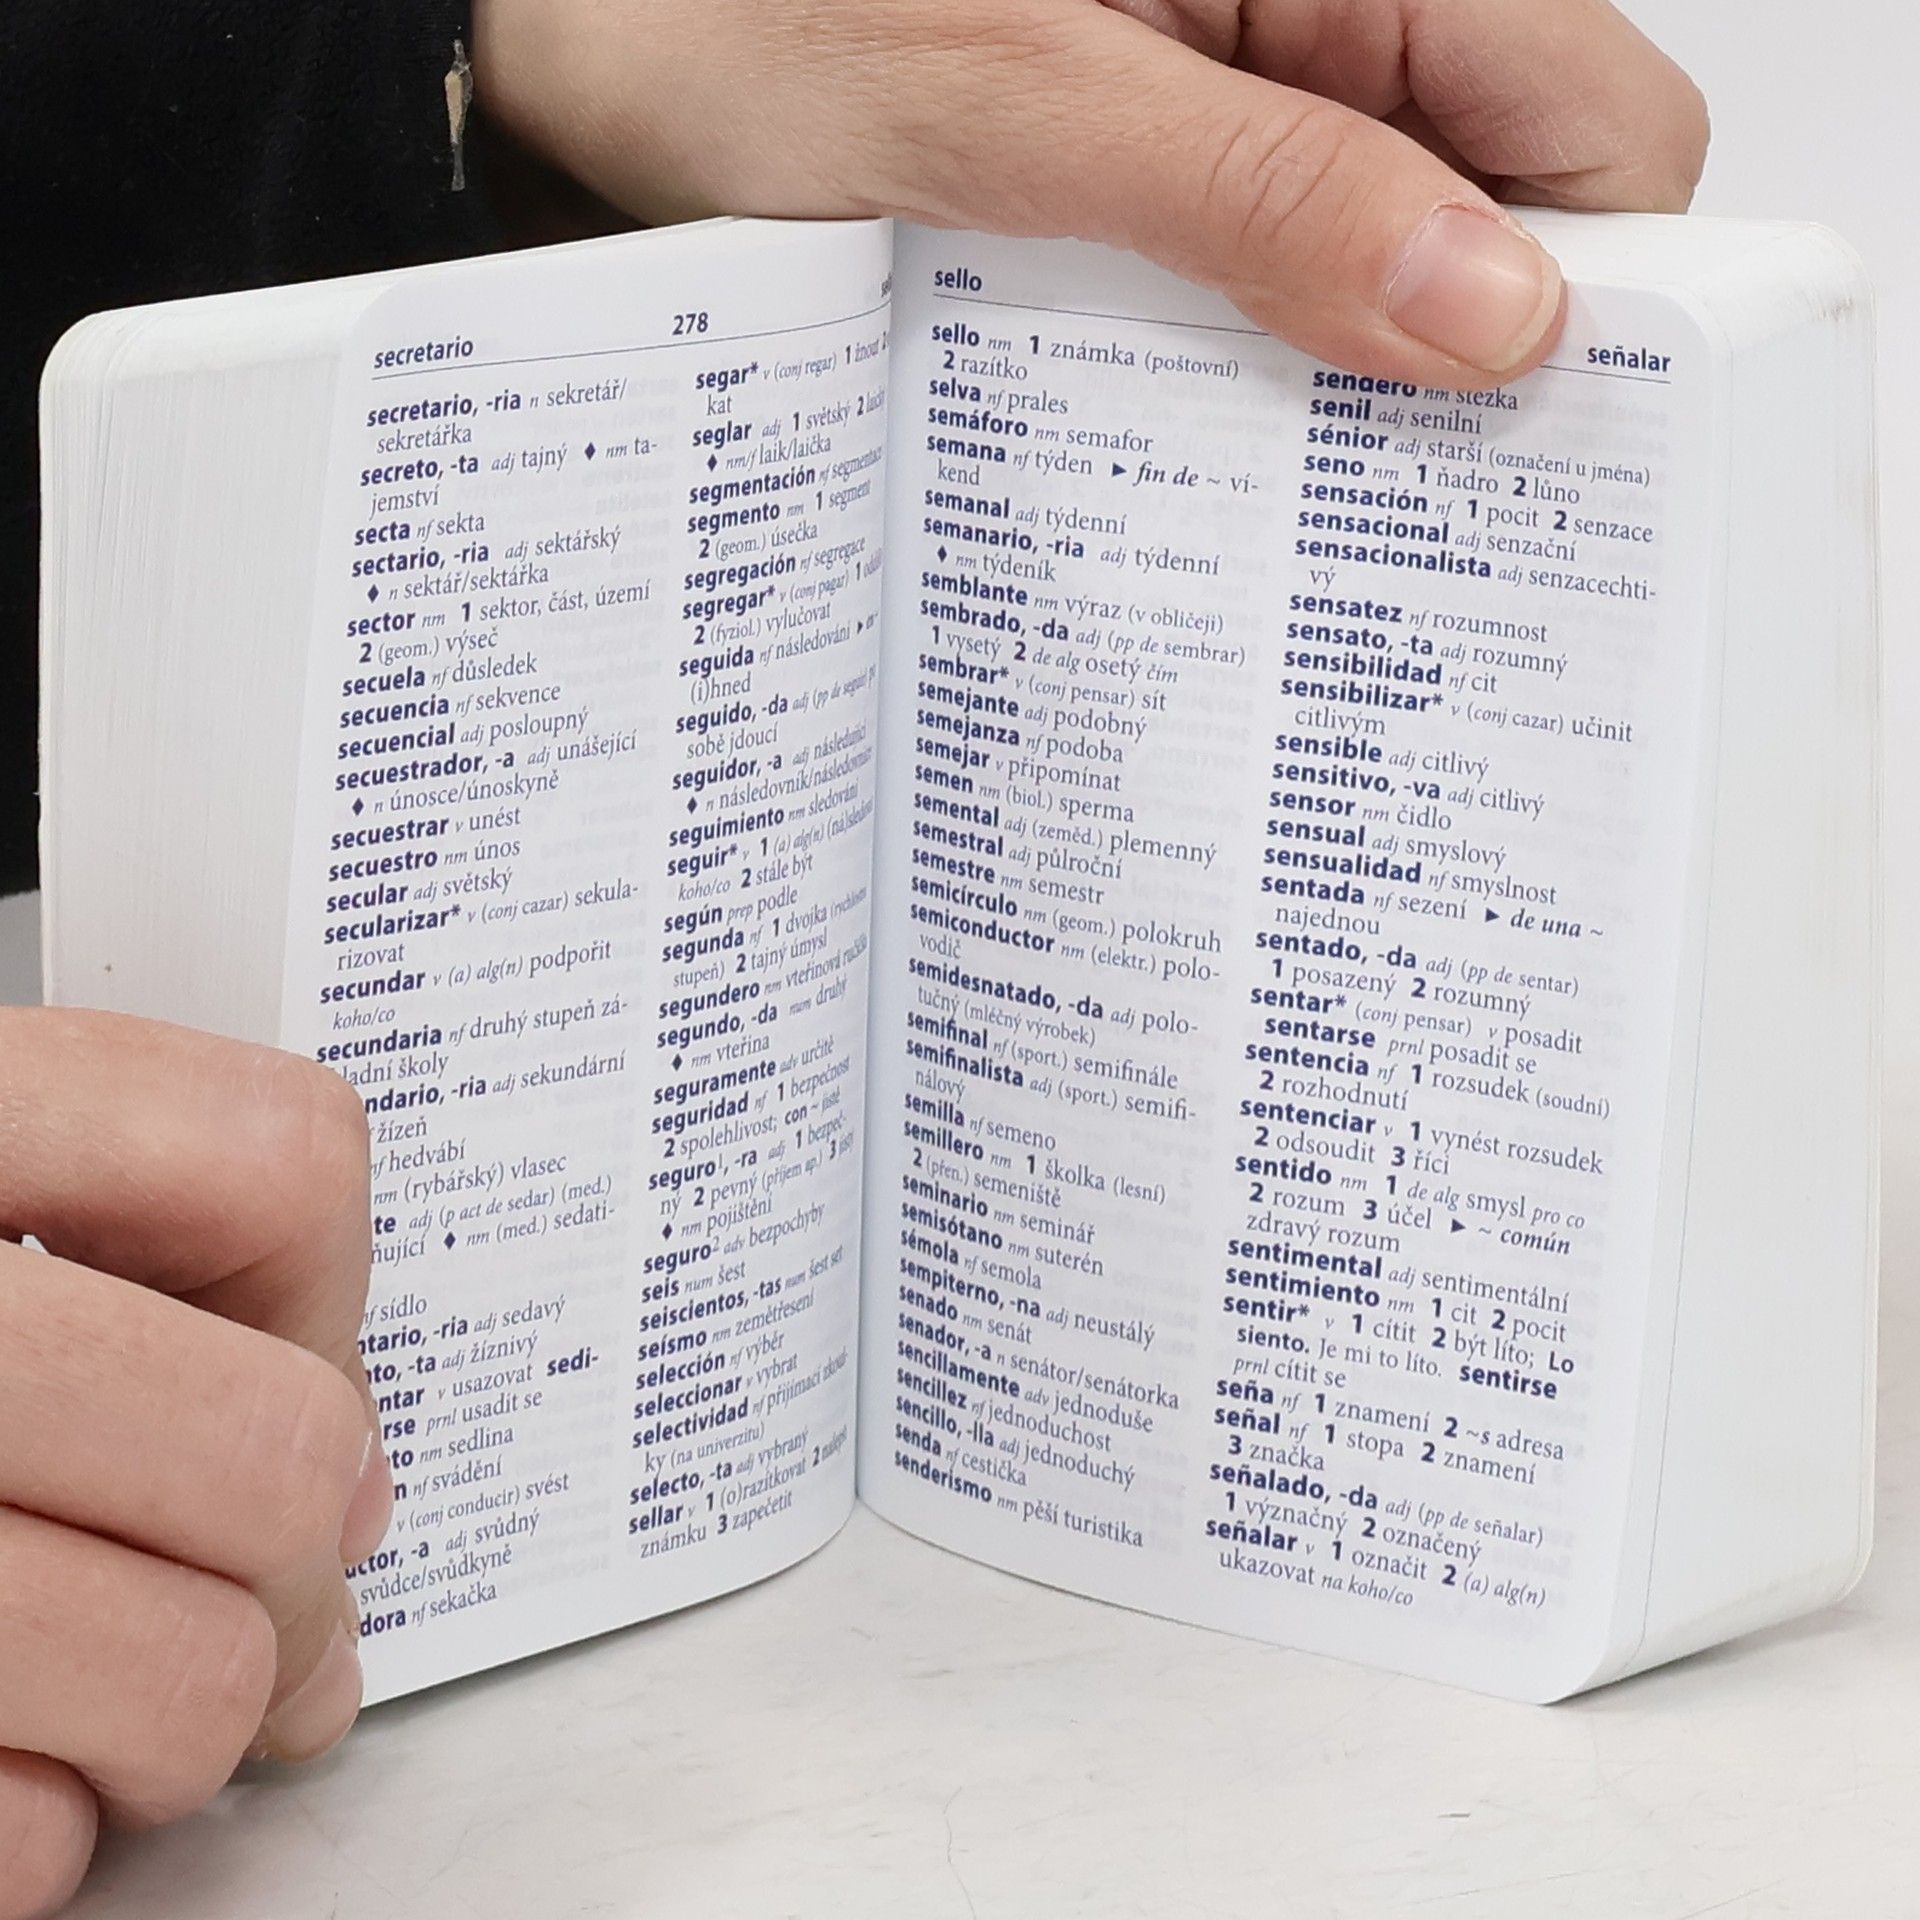 secretario
278
secretario, -ria n sekretář/
sekretářka
secreto, -ta adj tajný ♦ nm ta-
jemství
secta nf sekta
sectario, -ria adj sektářský
♦ n sektář/sektářka
sector nm 1 sektor, část, území
2 (geom.) výseč
secuela nf důsledek
secuencia nf sekvence
secuencial adj posloupný
secuestrador, -a adj unášející
♦ n únosce/únoskyně
secuestrar v unést
secuestro nm únos
secular adj světský
secularizar* v (conj cazar) sekula-
rizovat
secundar v (a) alg(n) podpořit
koho/co
secundaria nf druhý stupeň zá-
ladní školy
ndario, -ria adj sekundární
žízeň
nf hedvábí
nm (rybářský) vlasec
te adj (p act de sedar) (med.)
ňující ♦ nm (med.) sedati-
nf sídlo
ntario, -ria adj sedavý
nto, -ta adj žíznivý
ntar v usazovat sedi-
rse prnl usadit se
to nm sedlina
n nf svádění
v (conj conducir) svést
uctor, -a adj svůdný
svůdce/svůdkyně
dora nf sekačka
segar* v (conj regar) 1 žnout
kat
seglar adj 1 světský 2
♦ nm/f laik/laička
segmentación nf
segmento nm 1 segment
2 (geom.) úsečka
segregación nf segregace
segregar* v (conj pagar) 1
2 (fyziol.) vylučovat
seguida nf následování ►
(i)hned
seguido, -da adj (pp de seguir)
sobě jdoucí
seguidor, -a adj následující
♦ n následovník/následovnice
seguimiento nm sledování
seguir* v 1 (a) alg(n) (ná)sledovat
koho/co 2 stále být
según prep podle
segunda nf 1 dvojka (rychlostní
stupeň) 2 tajný úmysl
segundero nm vteřinová ručička
segundo, -da num druhý
♦ nm vteřina
seguramente adv určitě
seguridad nf 1 bezpečnost
2 spolehlivost; con ~ jistě
seguro¹, -ra adj 1 bezpeč-
ný 2 pevný (příjem ap.) 3 jistý
♦ nm pojištění
seguro² adv bezpochyby
seis num šest
seiscientos, -tas num šest set
seísmo nm zemětřesení
selección nf výběr
seleccionar v vybrat
selectividad nf přijímací zkouš-
ky (na univerzitu)
selecto, -ta adj vybraný
sellar v 1 (o)razítkovat 2 nalepit
známku 3 zapečetit
sello
señalar
sello nm 1 známka (poštovní)
2 razítko
selva nf prales
semáforo nm semafor
semana nf týden ► fin de ~ ví-
kend
semanal adj týdenní
semanario, -ria adj týdenní
♦ nm týdeník
semblante nm výraz (v obličeji)
sembrado, -da adj (pp de sembrar)
1 vysetý 2 de alg osetý čím
sembrar* v (conj pensar) sít
semejante adj podobný
semejanza nf podoba
semejar v připomínat
semen nm (biol.) sperma
semental adj (zeměd.) plemenný
semestral adj půlroční
semestre nm semestr
semicírculo nm (geom.) polokruh
semiconductor nm (elektr.) polo-
vodič
semidesnatado, -da adj polo-
tučný (mléčný výrobek)
semifinal nf (sport.) semifinále
semifinalista adj (sport.) semifi-
nálový
semilla nf semeno
semillero nm 1 školka (lesní)
2 (přen.) semeniště
seminario nm seminář
semisótano nm suterén
sémola nf semola
sempiterno, -na adj neustálý
senado nm senát
senador, -a n senátor/senátorka
sencillamente adv jednoduše
sencillez nf jednoduchost
sencillo, -lla adj jednoduchý
senda nf cestička
senderismo nm pěší turistika
sendero nm stezka
senil adj senilní
sénior adj starší (označení u jména)
seno nm 1 ňadro 2 lůno
sensación nf 1 pocit 2 senzace
sensacional adj senzační
sensacionalista adj senzacechti-
vý
sensatez nf rozumnost
sensato, -ta adj rozumný
sensibilidad nf cit
sensibilizar* v (conj cazar) učinit
citlivým
sensible adj citlivý
sensitivo, -va adj citlivý
sensor nm čidlo
sensual adj smyslový
sensualidad nf smyslnost
sentada nf sezení ► de una ~
najednou
sentado, -da adj (pp de sentar)
1 posazený 2 rozumný
sentar* (conj pensar) v posadit
sentarse prnl posadit se
sentencia nf 1 rozsudek (soudní)
2 rozhodnutí
sentenciar v 1 vynést rozsudek
2 odsoudit 3 říci
sentido nm 1 de alg smysl pro co
2 rozum 3 účel ► ~ común
zdravý rozum
sentimental adj sentimentální
sentimiento nm 1 cit 2 pocit
sentir* v 1 cítit 2 být líto; Lo
siento. Je mi to líto. sentirse
prnl cítit se
seña nf 1 znamení 2 ~s adresa
señal nf 1 stopa 2 znamení
3 značka
señalado, -da adj (pp de señalar)
1 význačný 2 označený
señalar v 1 označit 2 (a) alg(n)
ukazovat na koho/co